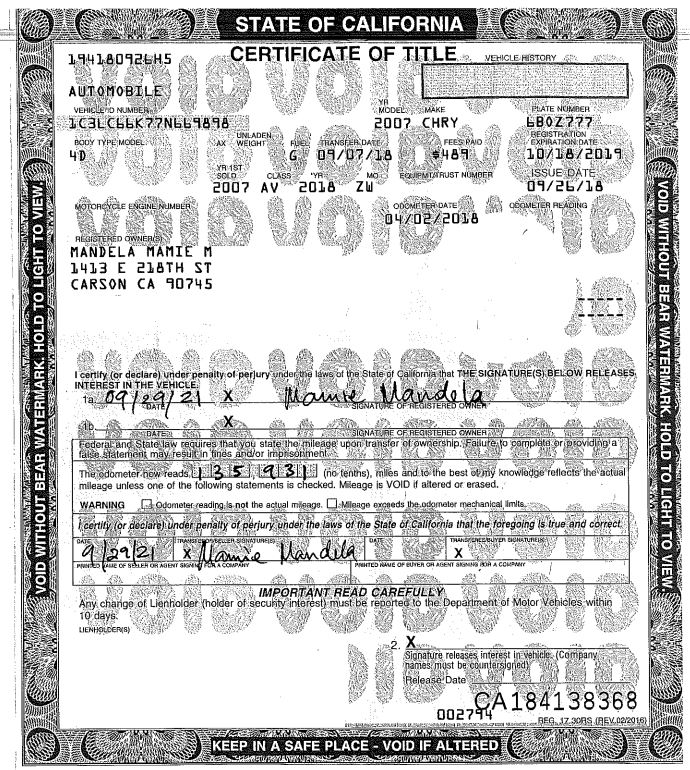 STATE OF CALIFORNIA
CERTIFICATE OF TITLE
VEHICLE HISTORY
AUTOMOBILE
VEHICLE ID NUMBER
YR MODEL
MAKE
PLATE NUMBER
1C3LC66K77N669898
2007 CHRY
6BOZ777
BODY TYPE MODEL
AX
UNLADEN WEIGHT
FUEL
TRANSFER DATE
FEES PAID
REGISTRATION EXPIRATION DATE
4D
G
09/07/18
$489
10/18/2019
YR 1ST SOLD
CLASS
*YR
MO
EQUIPMT/TRUST NUMBER
ISSUE DATE
2007 AV 2018 ZW
09/26/18
MOTORCYCLE ENGINE NUMBER
ODOMETER DATE
ODOMETER READING
04/02/2018
REGISTERED OWNER(S)
MANDELA MAMIE M
1413 E 218TH ST
CARSON CA 90745
I certify (or declare) under penalty of perjury under the laws of the State of California that THE SIGNATURE(S) BELOW RELEASES
INTEREST IN THE VEHICLE.
1a. 09/29/21 X Mamie Mandela
DATE SIGNATURE OF REGISTERED OWNER
1b. X
DATE SIGNATURE OF REGISTERED OWNER
Federal and State law requires that you state the mileage upon transfer of ownership. Failure to complete or providing a
false statement may result in fines and/or imprisonment.
The odometer now reads 135,931 (no tenths), miles and to the best of my knowledge reflects the actual
mileage unless one of the following statements is checked. Mileage is VOID if altered or erased.
WARNING Odometer reading is not the actual mileage. Mileage exceeds the odometer mechanical limits.
I certify (or declare) under penalty of perjury under the laws of the State of California that the foregoing is true and correct.
DATE TRANSFEROR/SELLER SIGNATURE(S) DATE TRANSFEREE/BUYER SIGNATURE(S)
9/29/21 X Mamie Mandela X
PRINTED NAME OF SELLER OR AGENT SIGNING FOR A COMPANY PRINTED NAME OF BUYER OR AGENT SIGNING FOR A COMPANY
IMPORTANT READ CAREFULLY
Any change of Lienholder (holder of security interest) must be reported to the Department of Motor Vehicles within
10 days.
LIENHOLDER(S)
2. X
Signature releases interest in vehicle. (Company
names must be countersigned)
Release Date
CA184138368
002794
REG. 17.30RS (REV.02/2016)
KEEP IN A SAFE PLACE - VOID IF ALTERED
VOID WITHOUT BEAR WATERMARK. HOLD TO LIGHT TO VIEW.
VOID WITHOUT BEAR WATERMARK. HOLD TO LIGHT TO VIEW.
VOID VOID VOID VOID